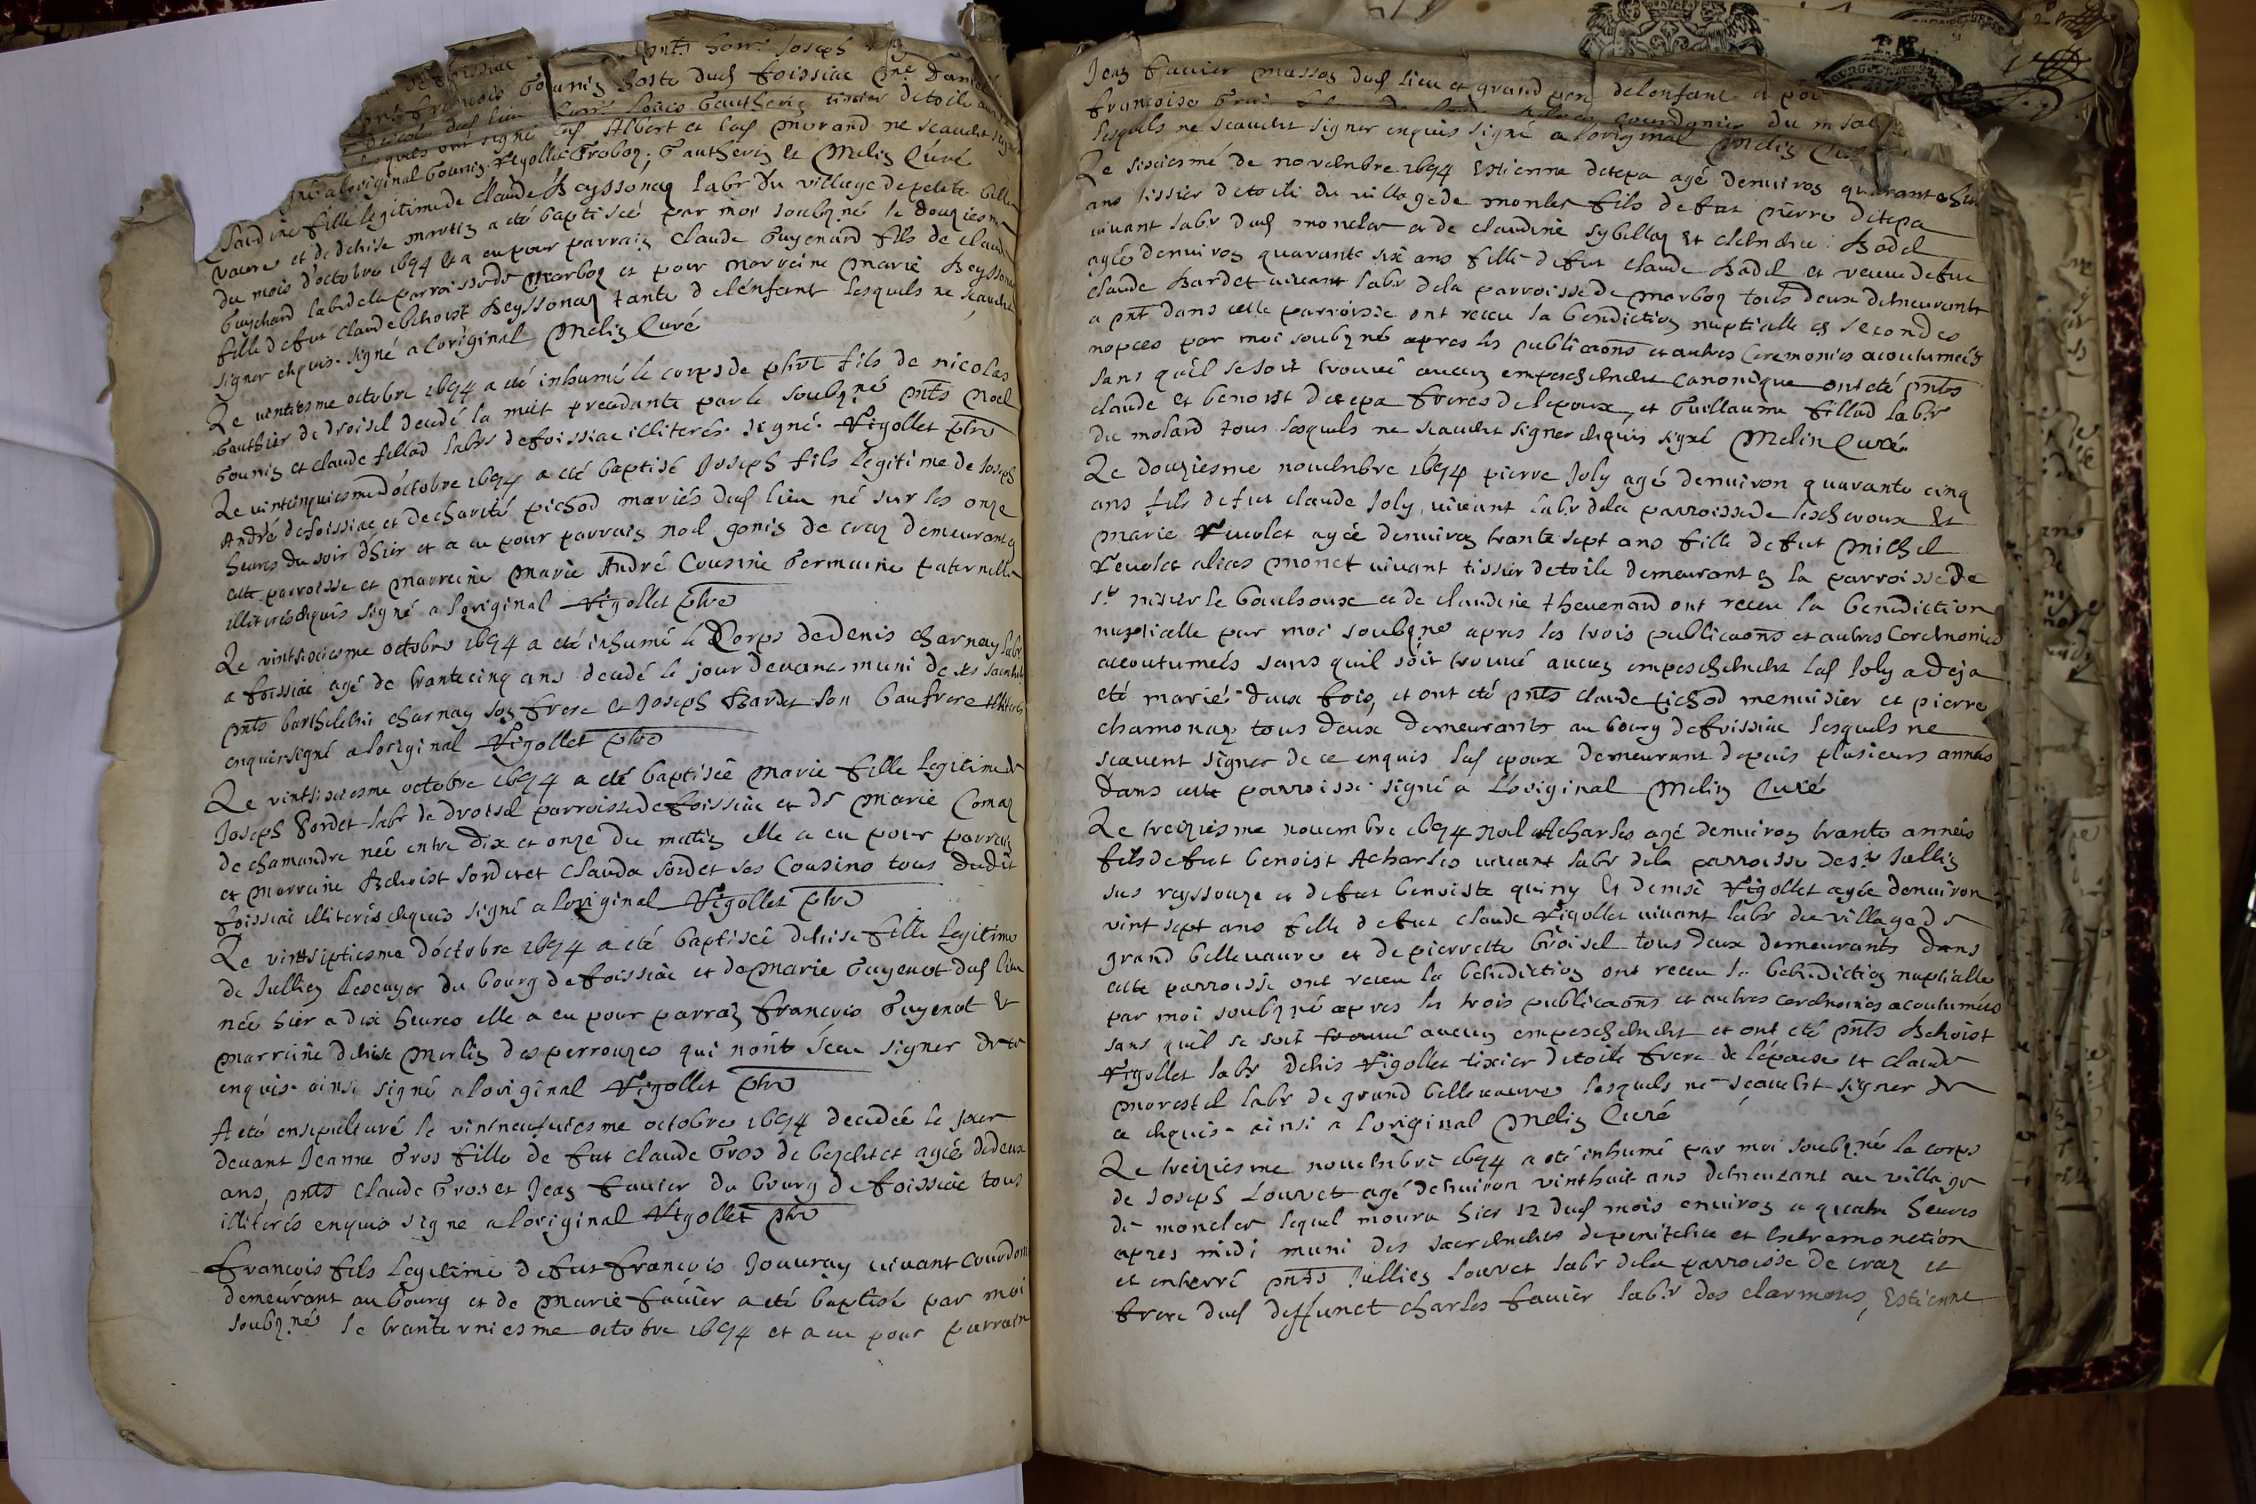 pnts honn. Joseph
françois Gouniz hoste dud foissiac
dud lieu honn. Louis Gautheriz tissier de toile
lesquels ont signé led Albert et led Morand ne scauent signer
signé a loriginal Gouniz, Vigollet Trobon, Gautheriz et Meliz Curé
Claudine fille legitime de Claude Beyssonaz labr du village de petite belle
vavre et de denise martiz a été baptisée par moi soubzné le douziesme
du mois doctobre 1694 et a eu pour parraiz Claude Guyenard fils de Claude
Guychard labr de la parroisse de Marboz et pour marreine Marie Beyssonaz
fille de fut Claude benoist Beyssonaz tante de lenfant lesquels ne scauent
signer enquis. signé a loriginal Meliz Curé
Le vintiesme octobre 1694 a été inhumé le corps de phirt fils de nicolas
Gauthier de droisel decedé la nuit precedante par le soubzné pnts Noel
Gouniz et Claude fillad labrs de foissiac illiterés. signé Vigollet ptre
Le vintcinquiesme doctobre 1694 a été baptisé Joseph fils legitime de Joseph
André de foissiac et de charité pichod mariés dud lieu né sur les onze
heures du soir dhier et a eu pour parraiz noel goniz de craz demeurant ez
cette parroisse et marreine Marie André Cousine Germaine paternelle
illiterés enquis signé a loriginal Vigollet ptre
Le vintsixiesme octobre 1694 a été inhumé le Corps de Denis charnay labr
a foissiac agé de trantecinq ans decedé le jour devant muni de ses sacrements
pnts barthelemi charnay soz frere et Joseph Bardet son beaufrere illiterés
enquis signé a loriginal Vigollet ptre
Le vintsixiesme octobre 1694 a été baptisée Marie fille legitime de
Joseph Sordet labr de droisel parroisse de foissiac et de Marie Comaz
de chamandre née entre dix et onze du matiz elle a eu pour parraiz
et marraine Benoist Sordet et Clauda Sordet ses Cousins tous dudit
foissiac illiterés enquis signé a loriginal Vigollet ptre
Le vintseptiesme doctobre 1694 a été baptisée denise fille legitime
de Jullien Lescuyer du bourg de foissiac et de Marie Guyenot dud lieu
née hier a dix heures elle a eu pour parraiz François Guyenot et
marreine denise Merliz des perrouzes qui nont sceu signer de ce
enquis. ainsi signé a loriginal Vigollet ptre
A été ensepulturé le vintneufuiesme octobre 1694 decedée le jour
devant Jeanne Gros fille de fut Claude Gros de bezentet agée de deux
ans, pnts Claude Gros et Jean favier du bourg de foissiac tous
illiterés enquis signe a loriginal Vigollet ptre
François fils legitime de fut François Jouuray vivant Courdon
demeurant au bourg et de Marie favier a été baptisé par moi
soubzné le tranteuniesme octobre 1694 et a eu pour parrain
Jeaz favier masson dud lieu et grand pere de lenfant et pour
françoise
lesquels ne scauent signer enquis signé a loriginal Meliz Curé
Le sixiesme de novembre 1694 Estienne detepa agé denuiroz quarantehuit
ans tissier de toile du village de moncler fils de fut pierre detepa
vivant labr dud moncler et de Claudine Sybillaz et clemence Badel
agée denuiroz quarante six ans fille de fut Claude Badel et veuve de fut
Claude Bardet vivant labr de la parroisse de Marboz tous deux demeurants
a pnt dans cette parroisse ont receu la benediction nuptialle ez secondes
nopces par moi soubzné apres les publicaons et autres Ceremonies acoutumées
sans quil se soit trouvé aucuz empeschement canonique ont été pnts
Claude et benoist detepa freres de lepoux, et Guillaume fillad labr
du molard tous lesquels ne scauent signer enquis signé Melin Curé
Le douziesme novembre 1694 pierre Joly agé denuiron quarante cinq
ans fils de fut Claude Joly, vivant labr de la parroisse de leschevoux et
Marie Veuolet agée denuiroz trante sept ans fille de fut Michel
Veuolet alias Monet vivant tissier de toile demeurant ez la parroisse de
St nisier le bouchoux et de Claudine thevenard ont receu la benediction
nuptialle par moi soubzné apres les trois publicaons et autres Ceremonies
accoutumées sans quil soit trouvé aucuz empeschement led Joly a deja
eté marié deux fois, et ont été pnts Claude pichod menuisier et pierre
chamonaz tous deux demeurants au bourg de foissiac lesquels ne
scavent signer de ce enquis led epoux demeurant depuis plusieurs années
dans cette parroisse signé a loriginal Meliz Curé
Le treiziesme novembre 1694 Noel Acharles agé denuiroz trante années
fils de fut benoist Acharles vivant labr de la parroisse de st Julliz
sus reyssouze et de fut benoiste quiny et denise Vigollet agée denuiron
vint sept ans fille de fut Claude Vigollet vivant labr du village de
grand bellevavre et de pierrette Groisel tous deux demeurants dans
cette parroisse ont receu la benediction ont receu la benediction nuptialle
par moi soubzné apres les trois publicaons et autres ceremonies acoutumées
sans quil se soit trouvé aucuz empeschement et ont été pnts Benoist
Vigollet labr denis Vigollet tixier de toile frere de lépouse et Claude
Morestel labr de grand bellevavre lesquels ne scauent signer de
ce enquis ainsi a loriginal Meliz Curé
Le treiziesme novembre 1694 a été inhumé par moi soubzné le corps
de Joseph Louvet agé denuiron vinthuit ans demeurant au village
de moncler lequel mouru hier 12 dud mois enuiroz a quatre heures
apres midi muni des sacrements de penitence et extremonction
et enterré pnts Julliez Louvet labr de la parroisse de craz et
frere dud deffunct Charles favier labr des clarmons, Estienne